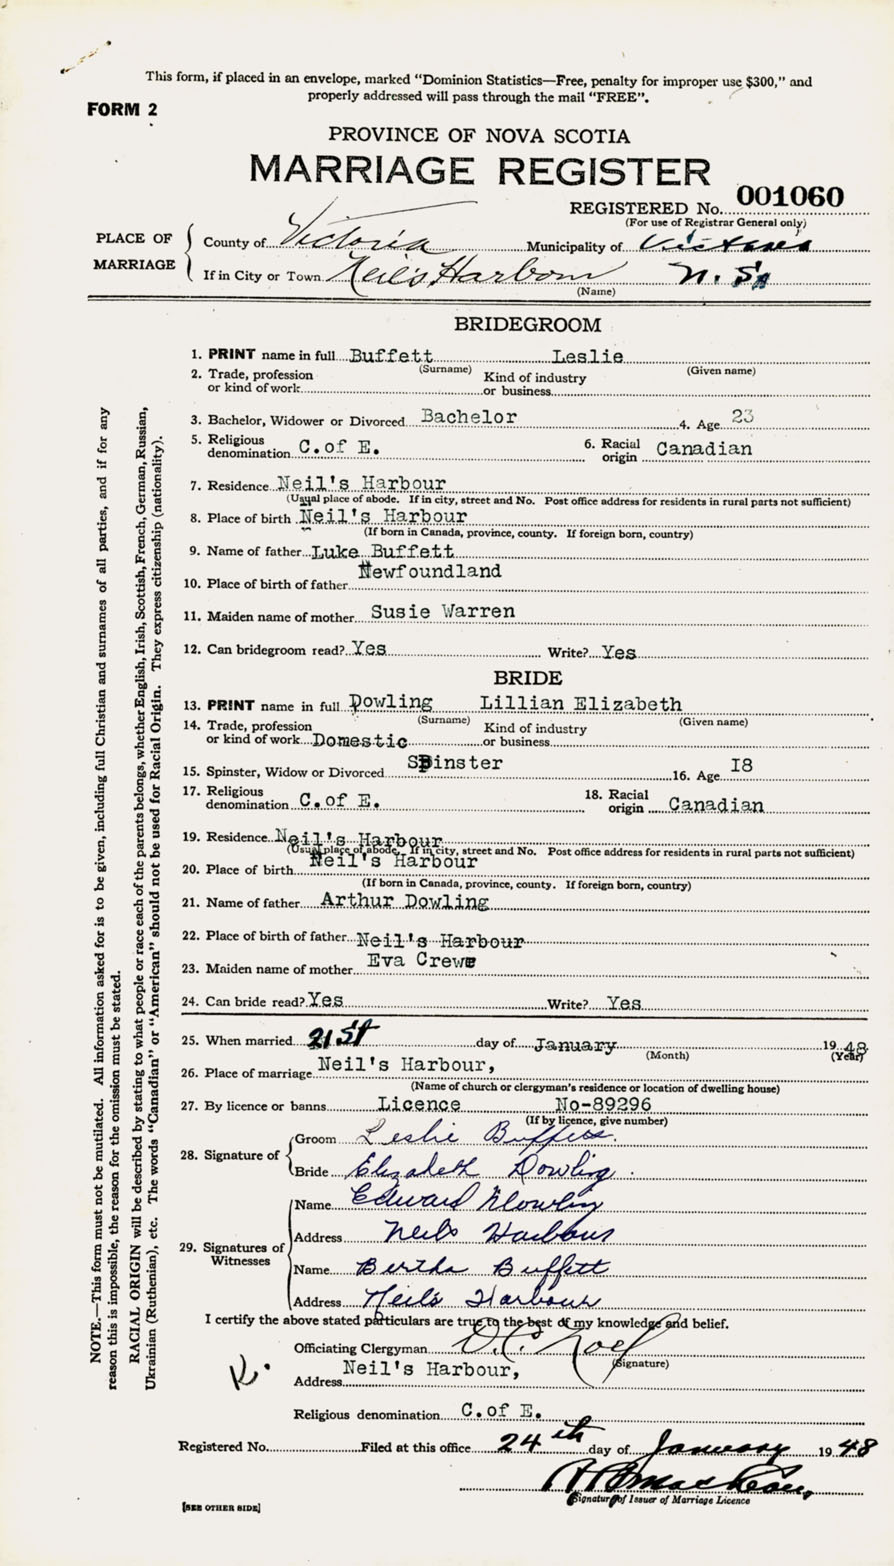 This form, if placed in an envelope, marked “Dominion Statistics—Free, penalty for improper use $300,” and
properly addressed will pass through the mail “FREE”.
FORM 2
PROVINCE OF NOVA SCOTIA
MARRIAGE REGISTER
REGISTERED No. 001060
(For use of Registrar General only)
PLACE OF MARRIAGE
County of Victoria Municipality of Victoria
If in City or Town Neil's Harbour N.S.
(Name)
BRIDEGROOM
1. PRINT name in full Buffett Leslie
(Surname) (Given name)
2. Trade, profession Kind of industry
or kind of work or business
3. Bachelor, Widower or Divorced Bachelor 4. Age 23
5. Religious 6. Racial
denomination C.of E. origin Canadian
7. Residence Neil's Harbour
(Usual place of abode. If in city, street and No. Post office address for residents in rural parts not sufficient)
8. Place of birth Neil's Harbour
(If born in Canada, province, county. If foreign born, country)
9. Name of father Luke Buffett
10. Place of birth of father Newfoundland
11. Maiden name of mother Susie Warren
12. Can bridegroom read? Yes Write? Yes
BRIDE
13. PRINT name in full Dowling Lillian Elizabeth
(Surname) (Given name)
14. Trade, profession Kind of industry
or kind of work Domestic or business
15. Spinster, Widow or Divorced Spinster 16. Age I8
17. Religious 18. Racial
denomination C.of E. origin Canadian
19. Residence Neil's Harbour
(Usual place of abode. If in city, street and No. Post office address for residents in rural parts not sufficient)
20. Place of birth Neil's Harbour
(If born in Canada, province, county. If foreign born, country)
21. Name of father Arthur Dowling
22. Place of birth of father Neil's Harbour
23. Maiden name of mother Eva Crewe
24. Can bride read? Yes Write? Yes
25. When married 21st day of January 19 48
(Month) (Year)
26. Place of marriage Neil's Harbour,
(Name of church or clergyman's residence or location of dwelling house)
27. By licence or banns Licence No-89296
(If by licence, give number)
28. Signature of
Groom Leslie Buffett.
Bride Elizabeth Dowling.
29. Signatures of Witnesses
Name Edward Dowling
Address Neils Harbour
Name Bertha Buffett
Address Neils Harbour
I certify the above stated particulars are true to the best of my knowledge and belief.
Officiating Clergyman Noel
(Signature)
Address Neil's Harbour,
Religious denomination C.of E.
Registered No. Filed at this office 24th day of January 19 48
Signature of Issuer of Marriage Licence
[SEE OTHER SIDE]
NOTE.—This form must not be mutilated. All information asked for is to be given, including full Christian and surnames of all parties, and if for any
reason this is impossible, the reason for the omission must be stated.
RACIAL ORIGIN will be described by stating to what people or race each of the parents belongs, whether English, Irish, Scottish, French, German, Russian,
Ukrainian (Ruthenian), etc. The words “Canadian” or “American” should not be used for Racial Origin. They express citizenship (nationality).